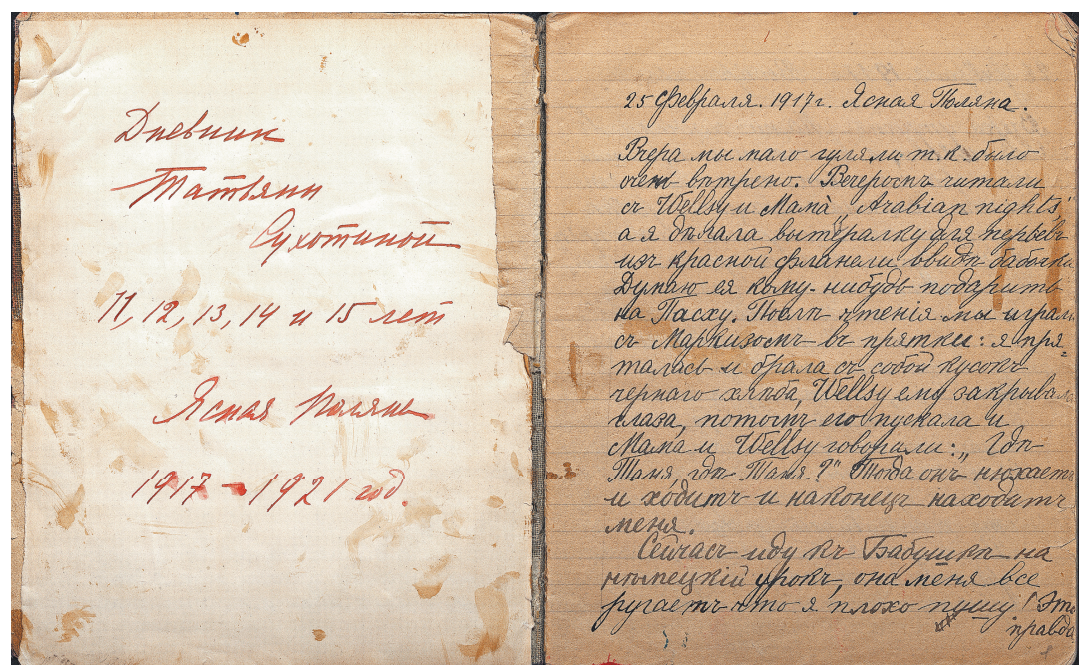 Дневник
Татьяны
Сухотиной
11, 12, 13, 14 и 15 лет
Ясная Поляна
1917 – 1921 год.
25 Февраля. 1917 г. Ясная Поляна.
Вчера мы мало гуляли т. к. было
очень вѣтрено. Вечеромъ читали
съ Wellsy и Мамà „Arabian nights"
а я дѣлала вытералку для перьевъ
изъ красной фланели ввидѣ бабочки
Думаю ея кому-нибудь подарить
на Пасху. Послѣ чтенія мы играли
съ Маркизомъ въ прятки: я пря-
талась и брала съ собой кусокъ
чернаго хлѣба, Wellsy ему закрывала
глаза, потомъ его пускала и
Мама и Wellsy говорили: „Гдѣ
Таня, гдѣ Таня?" Тогда онъ нюхаетъ
и ходитъ и наконецъ находитъ
меня.
Сейчасъ иду къ Бабушкѣ на
нѣмецкій урокъ, она меня все
ругаетъ что я плохо пушу! Это
правда